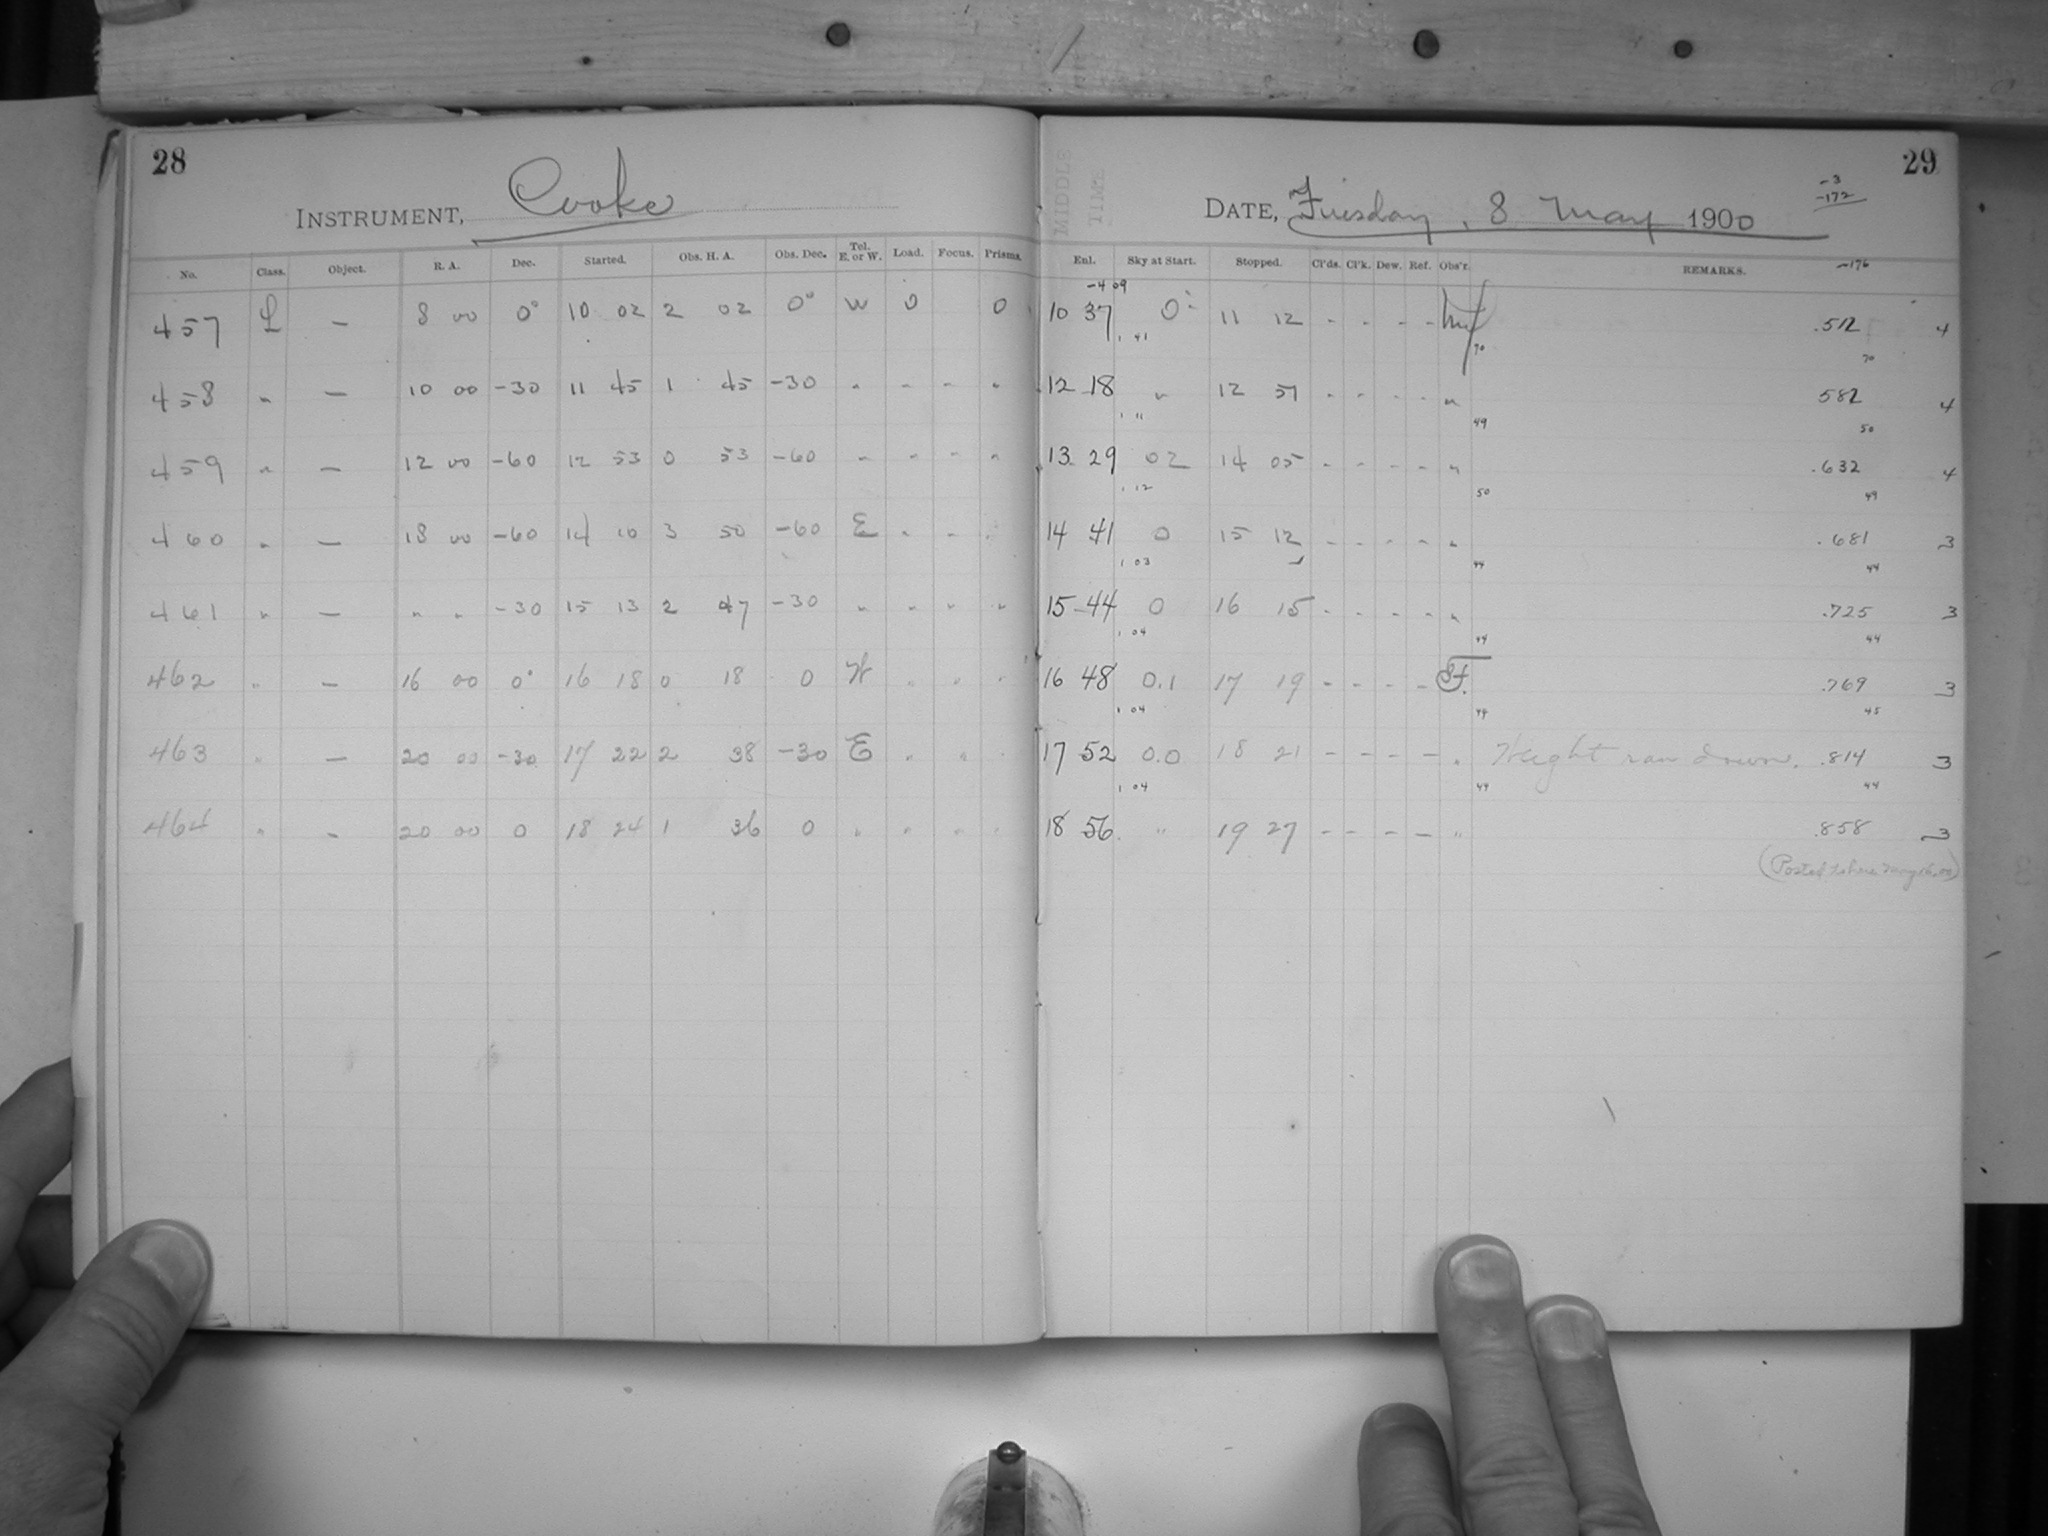 28
INSTRUMENT, Cooke
No. Class. Object. R. A. Dec. Started. Obs. H. A. Obs. Dec. Tel. E. or W. Load. Focus. Prisms.
457 L — 8 00 0° 10 02 2 02 0° W 0 0
458 " — 10 00 -30 11 45 1 45 -30 " " " "
459 " — 12 00 -60 12 53 0 53 -60 " " " "
460 " — 18 00 -60 14 10 3 50 -60 E " " "
461 " — " " -30 15 13 2 47 -30 " " " "
462 " — 16 00 0° 16 18 0 18 0 W " " "
463 " — 20 00 -30 17 22 2 38 -30 E " " "
464 " — 20 00 0 18 24 1 36 0 " " " "
MIDDLE
TIME
29
-3
-172
DATE, Tuesday, 8 May 1900
Enl. Sky at Start. Stopped. Cl'ds. Cl'k. Dew. Ref. Obs'r. REMARKS. -176
-4 09
10 37 0 11 12 - - - - .512 4
1 41 70 70
12 18 " 12 57 - - - - " 582 4
1 11 49 50
13 29 02 14 05 - - - - " .632 4
1 12 50 49
14 41 0 15 12 - - - - " .681 3
1 03 44 44
15 44 0 16 15 - - - - " .725 3
1 04 44 44
16 48 0.1 17 19 - - - - .769 3
1 04 44 45
17 52 0.0 18 21 - - - - " Weight ran down. .814 3
1 04 44 44
18 56 " 19 27 - - - - " .858 3
(Posted to here May 16, 00)